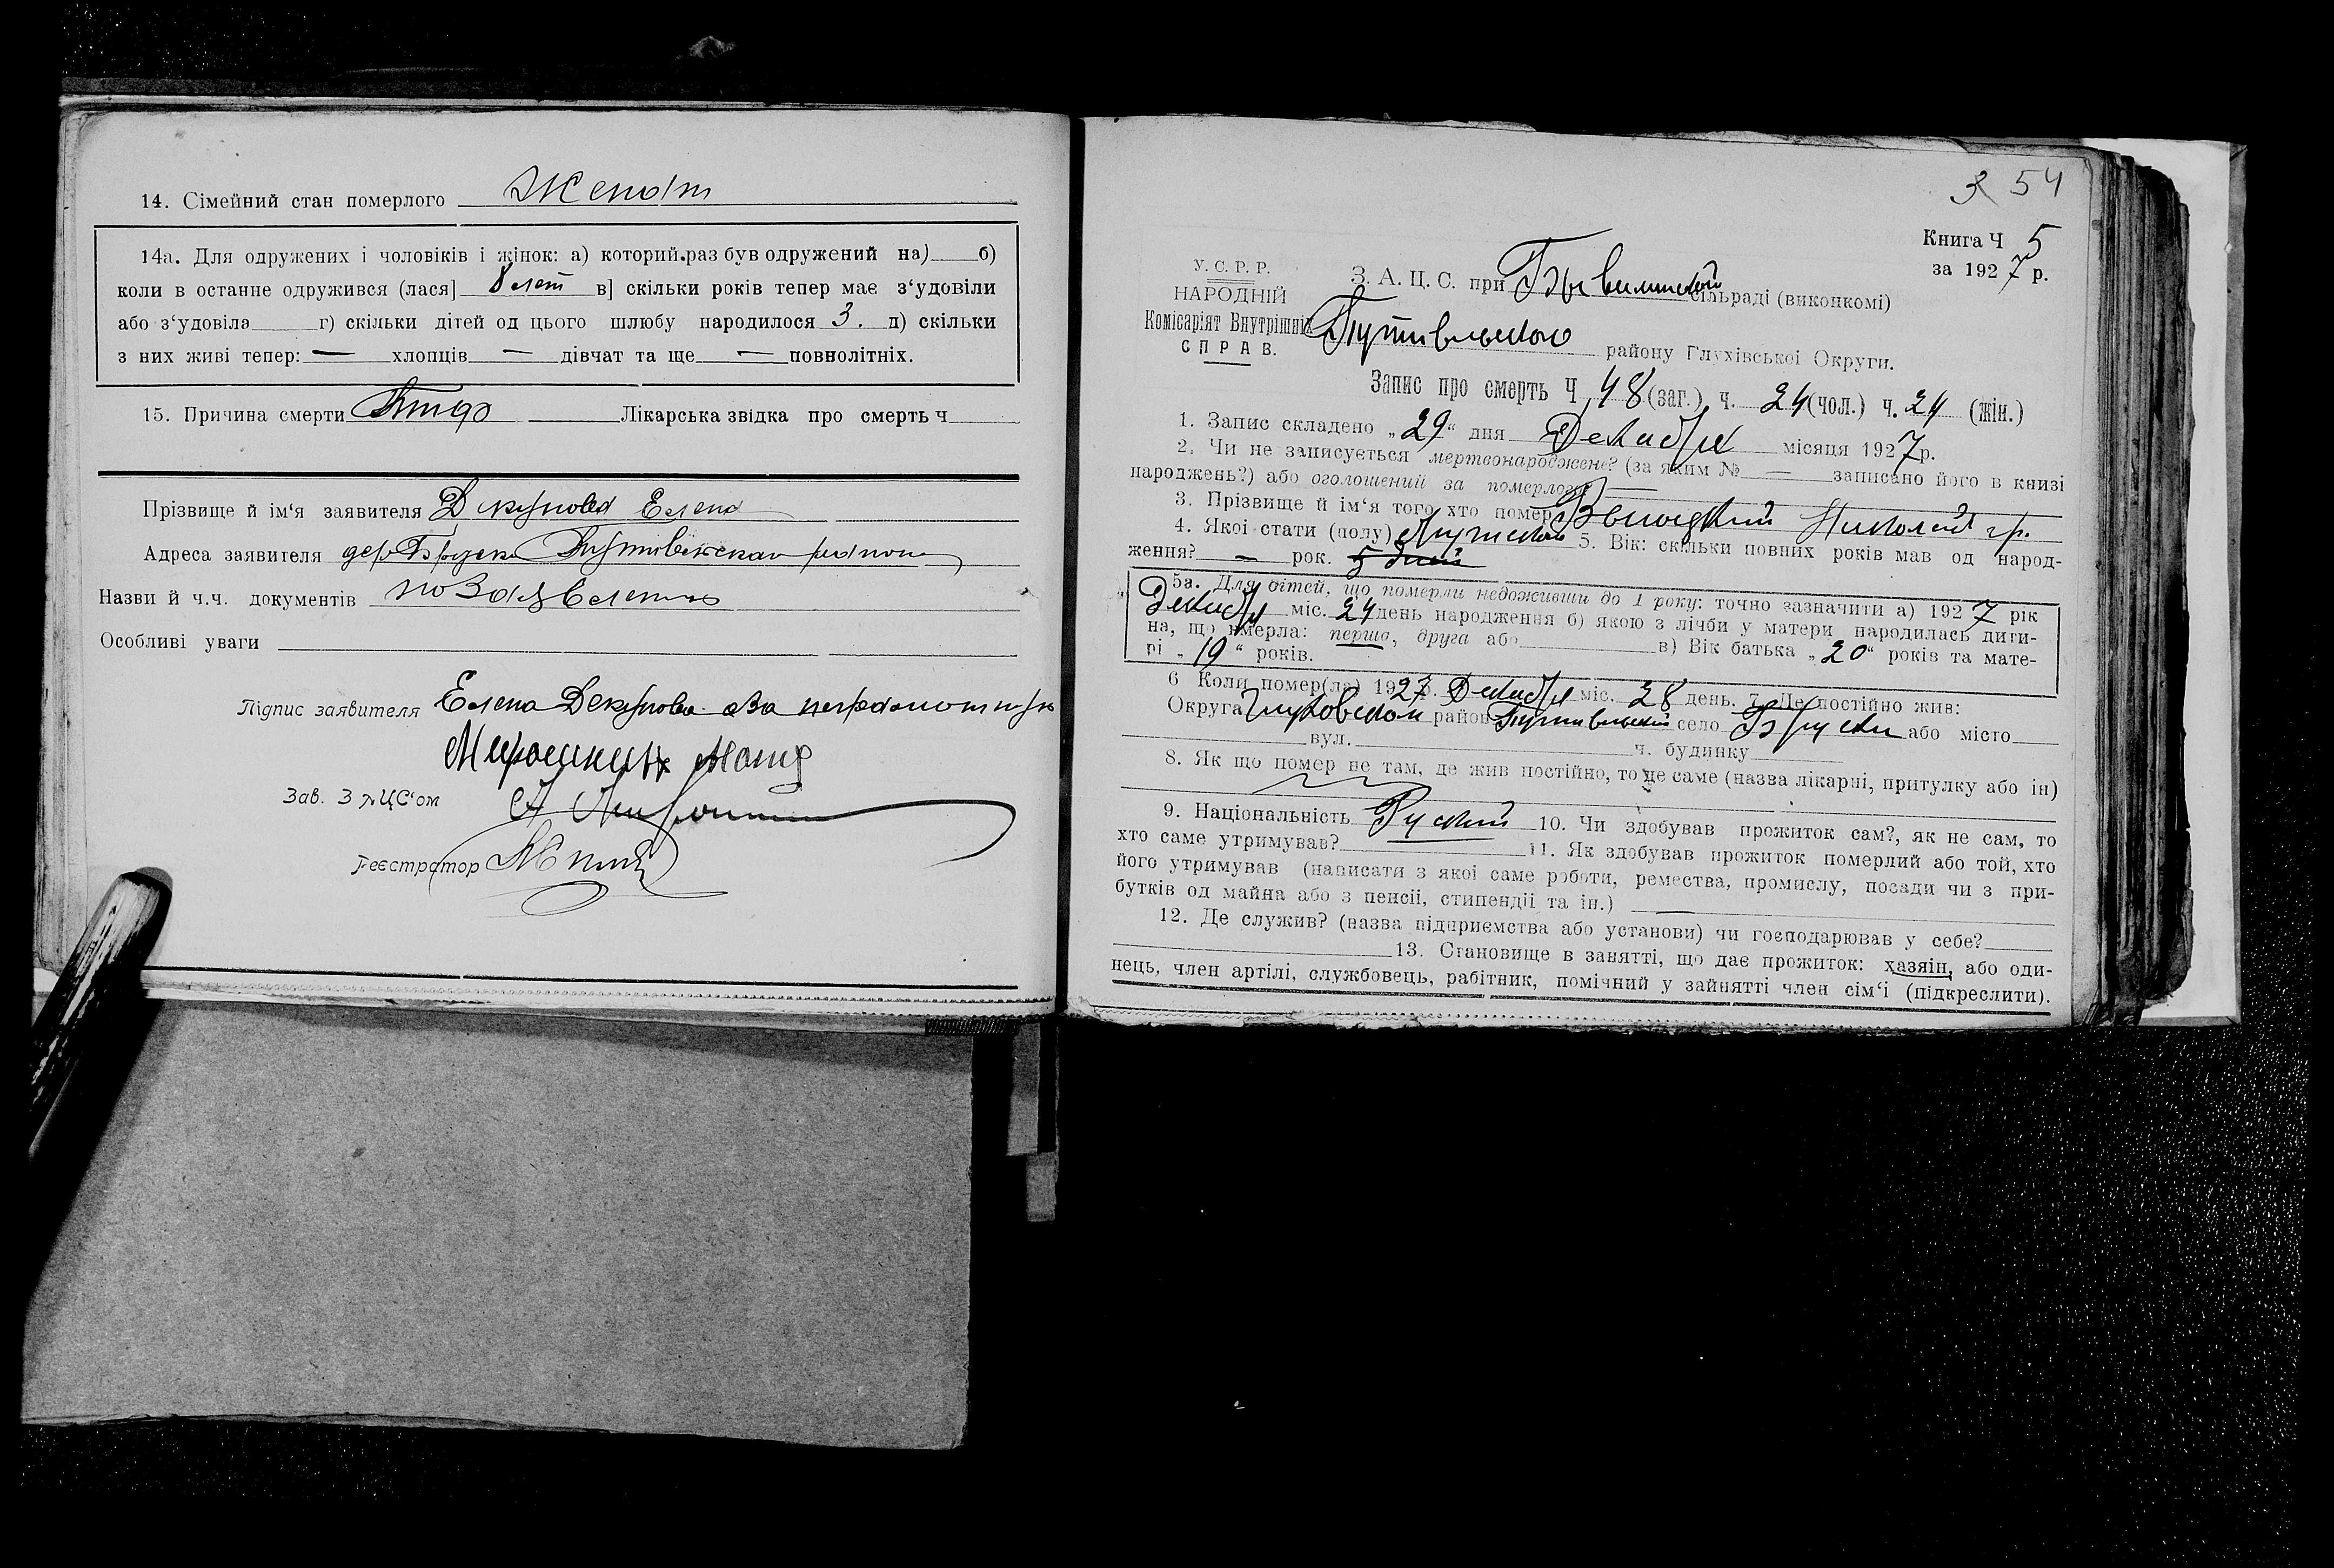 14. Сімейний стан померлого Женат
14а. Для одружених і чоловіків і жінок: а) которий раз був одружений на) б)
коли в останне одружився (лася] 8 лет в] скільки років тепер має з‘удовіли
або з‘удовіла г) скільки дітей од цього шлюбу народилося 3. д) скільки
з них живі тепер: — хлопців — дівчат та ще — повнолітніх.
15. Причина смерти Лікарська звідка про смерть ч
Прізвище й ім‘я заявителя Декунова Елена
Адреса заявителя дер. Бруски Путивльскаго района
Назви й ч.ч. документів по Заявлению
Особливі уваги
Підпис заявителя Елена Декунова за неграмотную
Зав. ЗАЦС‘ом
Реєстратор
3 54
Книга Ч 5
за 1927 р.
У. С. Р. Р.
НАРОДНІЙ
Комісаріят Внутрішніх
СПРАВ.
З. А. Ц. С. при сільраді (виконкомі)
Путивльского району Глухівської Округи.
Запис про смерть Ч 48 (заг.) ч. 24 (чол.) ч. 24 (жін.)
1. Запис складено „29“ дня Декабря місяця 1927 р.
2. Чи не записується мертвонароджене? (за яким № — записано його в книзі
народжень?) або оголошений за померлого? —
3. Прізвище й ім‘я того хто помер Николай гр.
4. Якої стати (полу) Мужской 5. Вік: скільки повних років мав од народ-
ження? — рок. 5 дней
5а. Для дітей, що померли недоживши до 1 року: точно зазначити а) 1927 рік
Декабря міс. 24 день народження б) якою з лічби у матери народилась дити-
на, що вмерла: перша, друга або в) Вік батька „20“ років та мате-
рі „19“ років.
6 Коли помер(ла) 1927 р. Декабря міс. 28 день. 7. Де постійно жив:
Округа Глуховской район Путивльский село Бруски або місто
вул. ч. будинку
8. Як що помер не там, де жив постійно, то де саме (назва лікарні, притулку або ін)
9. Національність Руский 10. Чи здобував прожиток сам?, як не сам, то
хто саме утримував? 11. Як здобував прожиток померлий або той, хто
його утримував (написати з якої саме роботи, ремества, промислу, посади чи з при-
бутків од майна або з пенсії, стипендії та ін.) —
12. Де служив? (назва підприємства або установи) чи господарював у себе?
13. Становище в занятті, що дає прожиток: хазяін, або оди-
нець, член артілі, службовець, рабітник, помічний у зайнятті член сім‘ї (підкреслити).